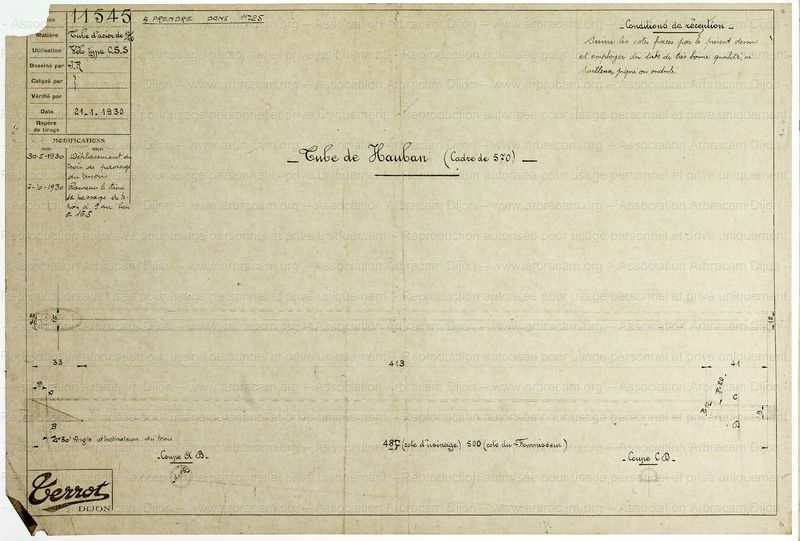 11545
A PRENDRE DANS 11725
Matière Tube d'acier de
Utilisation Vélo type C.S.S
Dessiné par J.R
Calqué par
Vérifié par
Date 21-1-1930
Repère
de tirage
MODIFICATIONS
30-5-1930 Déplacement du
trou de passage
du
7-10-1930 Ramener le trou
de passage
à 9 au lieu
de 16.5
- Conditions de réception -
Suivre les cotes fixées par le présent dessin
et employer du tube de très bonne qualité, ni
pailleux, piqué ou ondulé.
- Tube de Hauban (Cadre de 570) -
15
18
33
413
41
A
C
B
D
9
30' Angle d'inclinaison du trou
487 (cote d'usinage) 500 (cote du Fournisseur)
- Coupe A B -
- Coupe C D -
Terrot
DIJON
Association Arbracam Dijon -- www.arbracam.org -- Association Arbracam Dijon -- www.arbracam.org
Reproduction autorisée pour usage personnel et privé uniquement